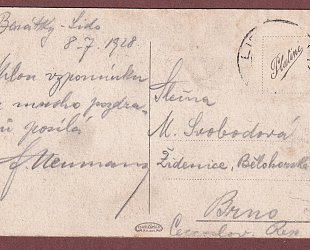 Benátky-Lido
8-7.1928
vzpomínku
a mnoho pozdra-
ů posílá
J. Neumann
Slečna
M. Svobodová
Židenice, Bělohorská
Brno
Platino
LI